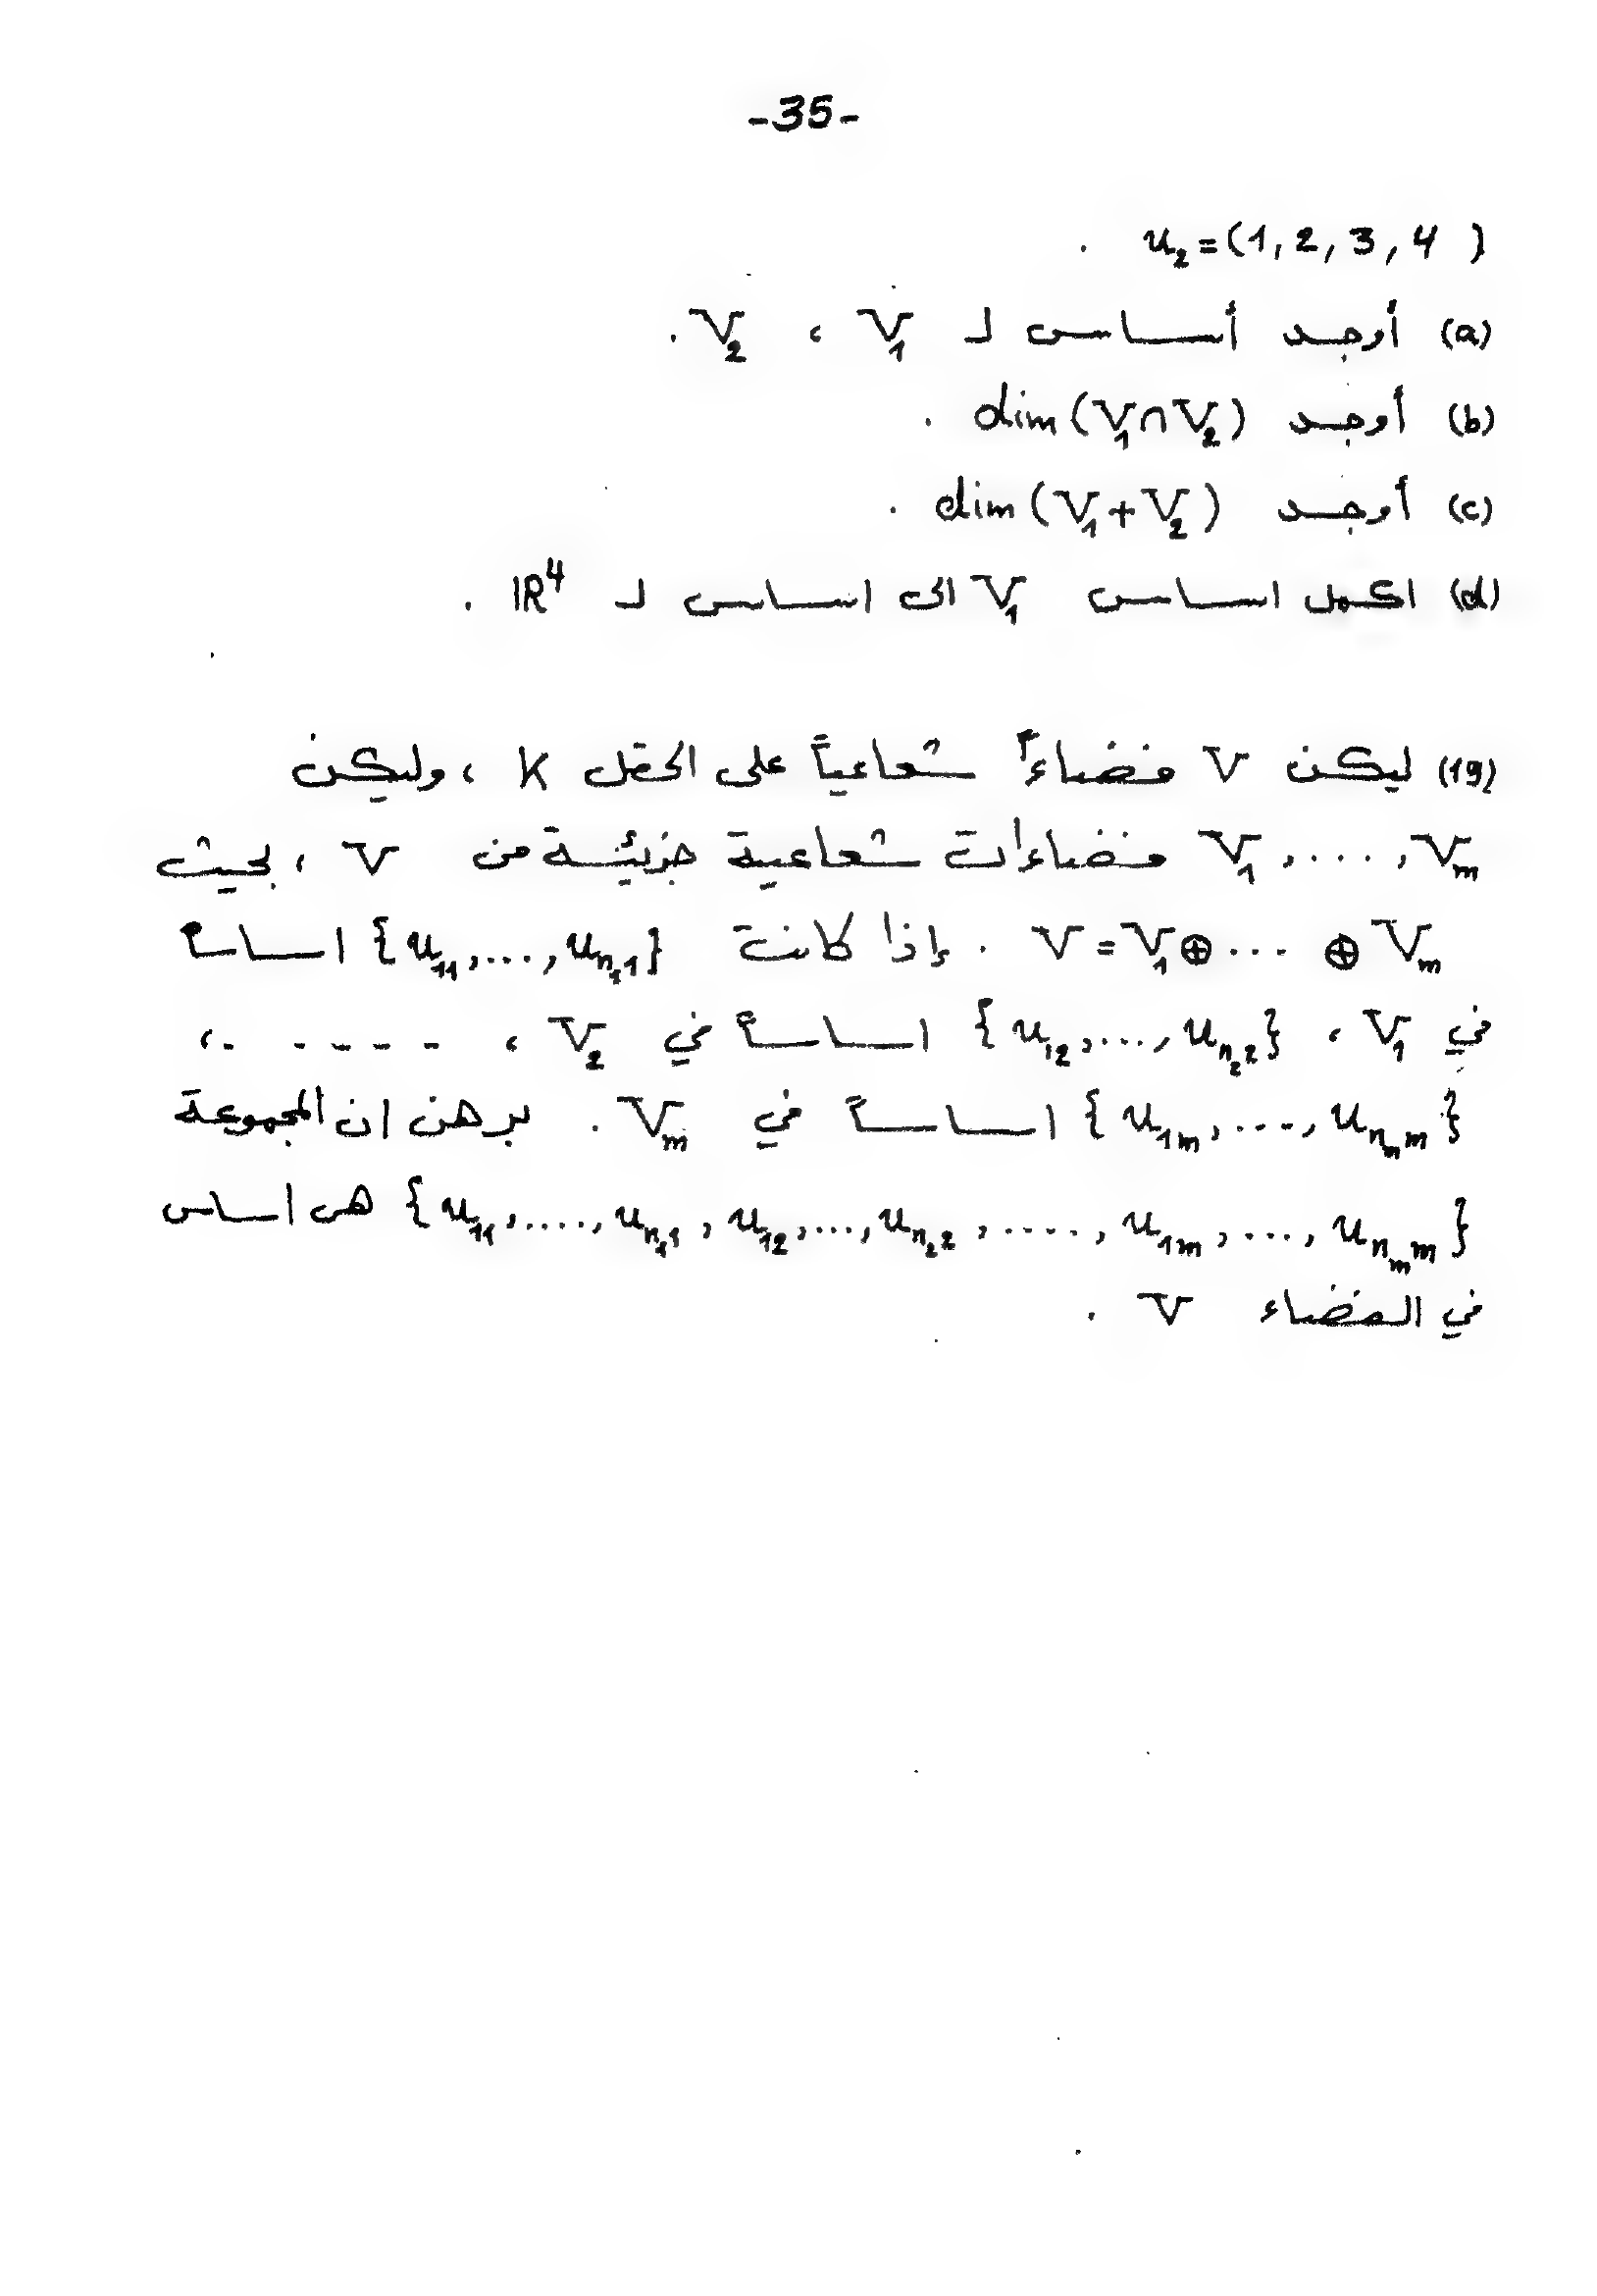 -35-
u₂=(1, 2, 3, 4) .
(a) أوجد أساس لـ V₁ ، V₂ .
(b) أوجد dim(V₁∩V₂) .
(c) أوجد dim(V₁+V₂) .
(d) اكمل اساس V₁ الى اساس لـ ℝ⁴ .
(19) ليكن V فضاءً شعاعياً على الحقل K ، وليكن
V₁,....,Vₘ فضاءات شعاعية جزئية من V ، بحيث
V=V₁⊕... ⊕Vₘ . إذا كانت {u₁₁,...,u_{n₁1}} اساساً
في V₁ ، {u₁₂,...,u_{n₂2}} اساساً في V₂ ، - - - - - ،
{u_{1m},...,u_{n_m m}} اساساً في Vₘ . برهن ان المجموعة
{u₁₁,....,u_{n₁1},u₁₂,...,u_{n₂2},.....,u_{1m},...,u_{n_m m}} هي اساس
في الفضاء V .